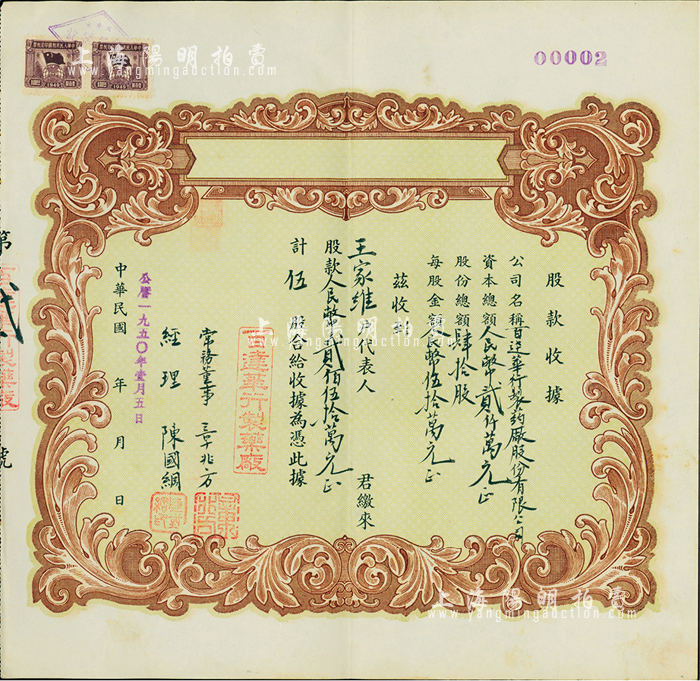 00002
股款收據
公司名稱百達華行製药廠股份有限公司
資本總額人民幣貳仟萬元正
股份總額肆拾股
每股金額人民幣伍拾萬元正
茲收到
王家維 代表人 君繳來
股款人民幣貳佰伍拾萬元正
計 伍 股合給收據為憑此據
百達華行製藥廠
常務董事 章兆方
經理 陳國綱
公曆一九五〇年壹月五日
中華民國 年 月 日
第
號
上海陽明拍賣
www.yangmingauction.com
上海陽明拍賣
www.yangmingauction.com
上海陽明拍賣
www.yangmingauction.com